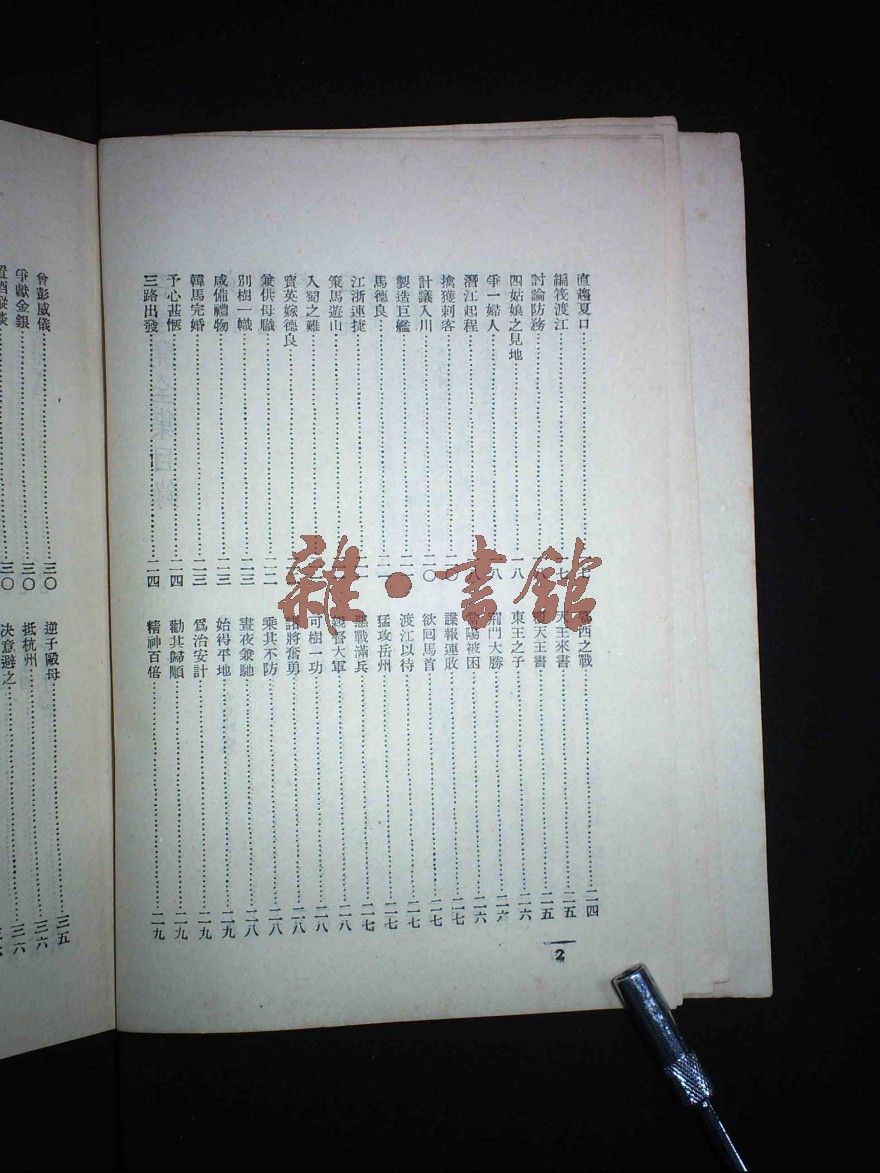 直趨夏口
編筏渡江 七
討論防務
四姑娘之見地 一八
爭一婦人 八
潛江起程 八
擒獲刺客 〇
計議入川 二〇
製造巨艦 二一
馬德良 二一
江浙連捷
策馬遊山
入蜀之難
寶英嫁德良
兼供母職 二二
別樹一幟 二三
咸備禮物 二三
韓馬完婚 二三
予心甚愜 二四
三路出發 二四
西之戰 二四
天王來書 二五
天王書 二五
東王之子 二六
荊門大勝 二六
陽被困 二六
諜報連敗 二七
欲回馬首 二七
渡江以待 二七
猛攻岳州 二七
惡戰滿兵 二七
親督大軍 二八
可樹一功 二八
諸將奮勇 二八
乘其不防 二八
晝夜兼馳 二八
始得平地 二九
爲治安計 二九
勸其歸順 二九
精神百倍 二九
2
曾彭威儀 三〇
爭獻金銀 三〇
逆子毆母 三五
抵杭州 三六
決意避之
雜·書館